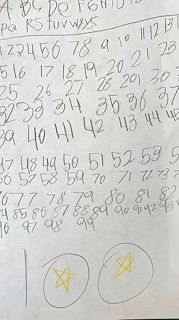 A B C DE FGHIJ
PQ RSTUVWXYS
1 2 3 4 5 6 78 9 10 11 12 13 1
5 16 17 18 19 20 21 22 23
25 26 27 28 29 30 3
32 33 34 35 36 37
39 40 41 42 43 44 45
47 48 49 50 51 52 53 5
56 57 58 59 70 71 72 73 7
76 77 78 79 80 81 82
84 85 86 87 88 89 90 91 92 93
96 97 98 99
100